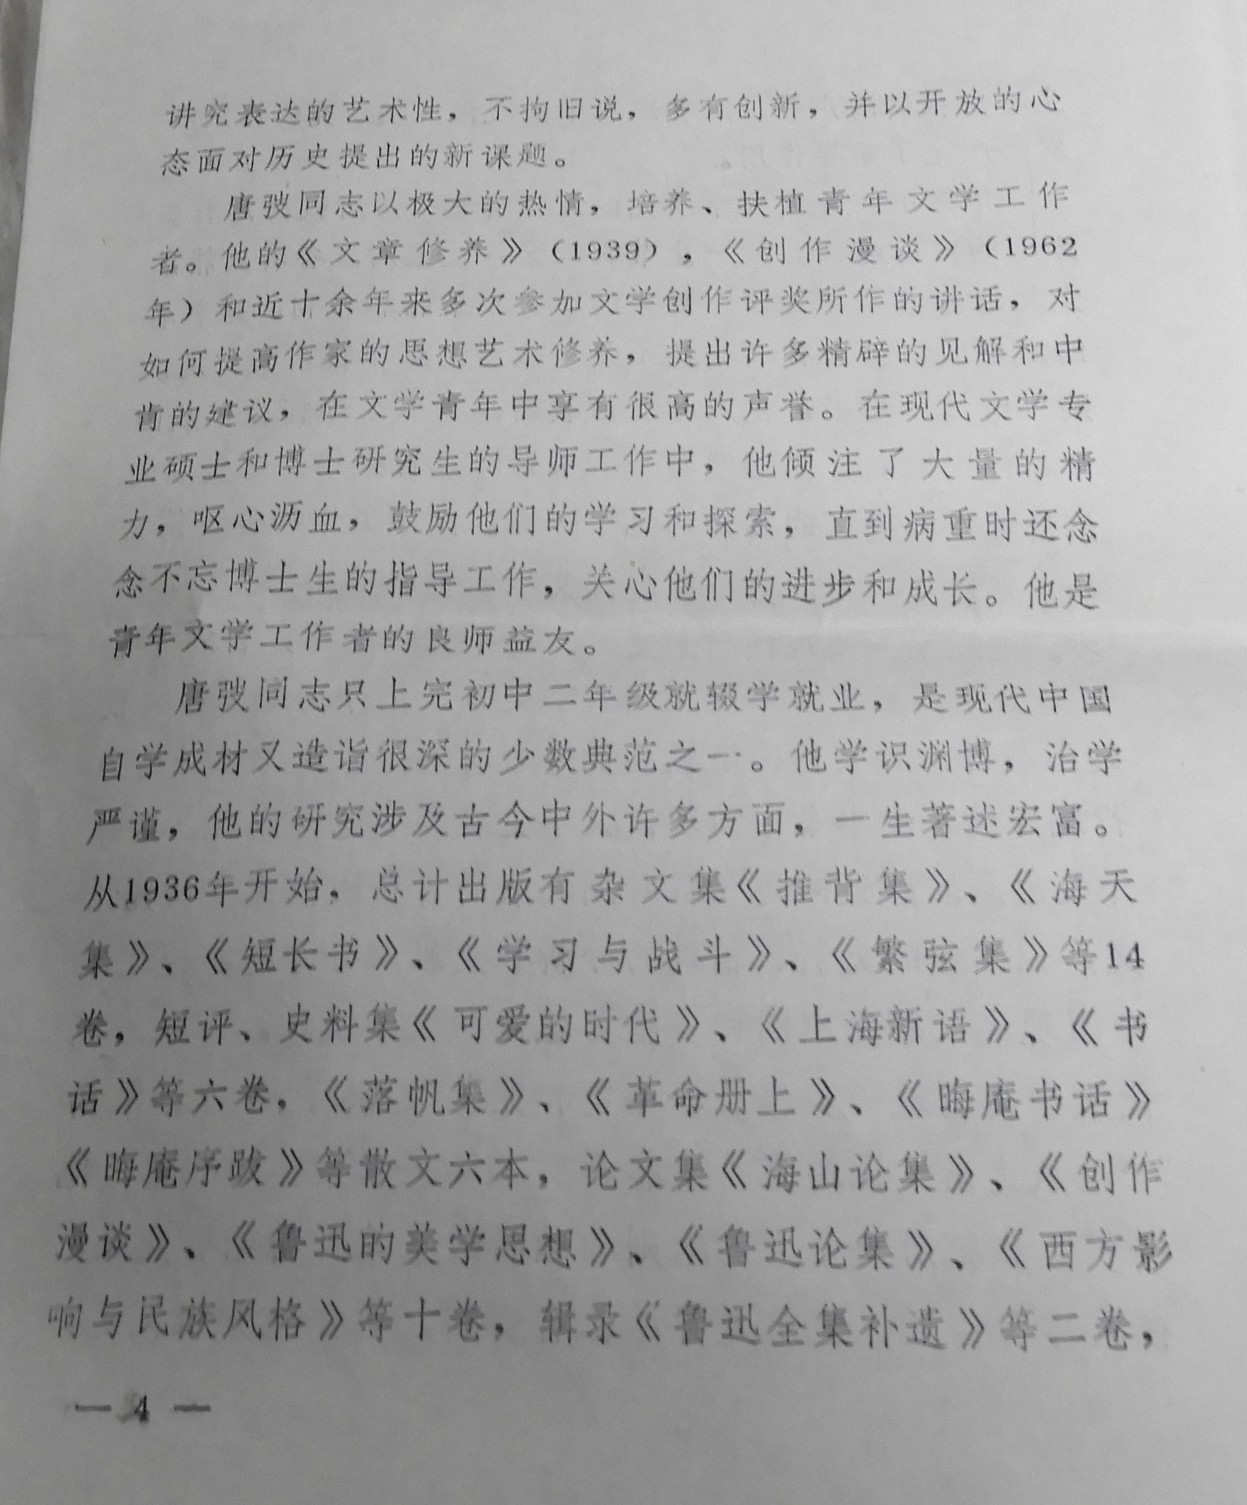 讲究表达的艺术性，不拘旧说，多有创新，并以开放的心
态面对历史提出的新课题。
唐弢同志以极大的热情，培养、扶植青年文学工作
者。他的《文章修养》（1939），《创作漫谈》（1962
年）和近十余年来多次参加文学创作评奖所作的讲话，对
如何提高作家的思想艺术修养，提出许多精辟的见解和中
肯的建议，在文学青年中享有很高的声誉。在现代文学专
业硕士和博士研究生的导师工作中，他倾注了大量的精
力，呕心沥血，鼓励他们的学习和探索，直到病重时还念
念不忘博士生的指导工作，关心他们的进步和成长。他是
青年文学工作者的良师益友。
唐弢同志只上完初中二年级就辍学就业，是现代中国
自学成材又造诣很深的少数典范之一。他学识渊博，治学
严谨，他的研究涉及古今中外许多方面，一生著述宏富。
从1936年开始，总计出版有杂文集《推背集》、《海天
集》、《短长书》、《学习与战斗》、《繁弦集》等14
卷，短评、史料集《可爱的时代》、《上海新语》、《书
话》等六卷，《落帆集》、《革命册上》、《晦庵书话》
《晦庵序跋》等散文六本，论文集《海山论集》、《创作
漫谈》、《鲁迅的美学思想》、《鲁迅论集》、《西方影
响与民族风格》等十卷，辑录《鲁迅全集补遗》等二卷，
— 4 —